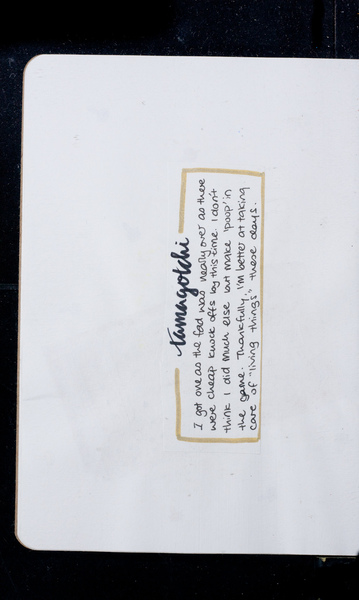 tamagotchi
I got one as the fad was really over as there
were cheap knock offs by this time. I don't
think I did much else but make 'poop' in
the game. Thankfully, I'm better at taking
care of "living things" these days.